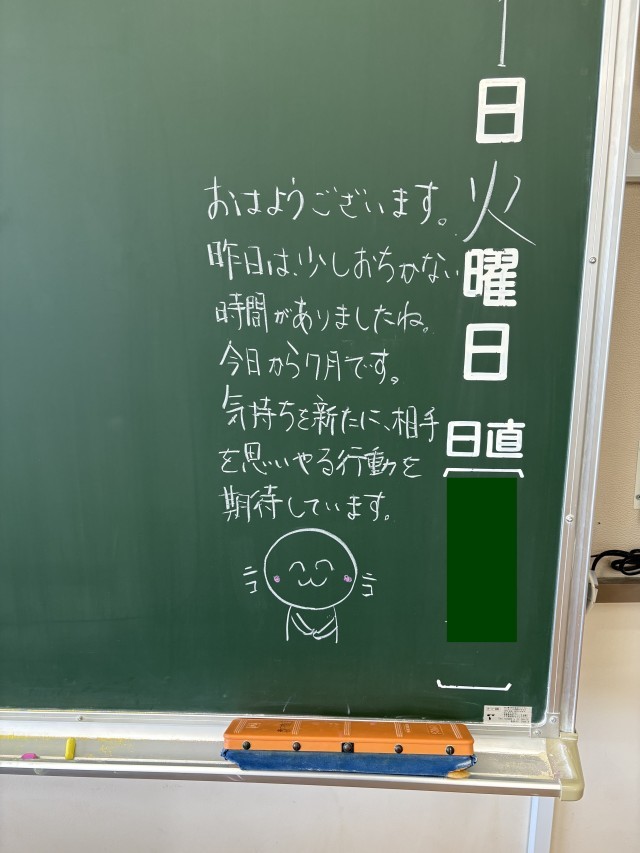 日
火
曜
日
日直
おはようございます。
昨日は、少しおちかない
時間がありましたね。
今日から7月です。
気持ちを新たに、相手
を思いやる行動を
期待しています。